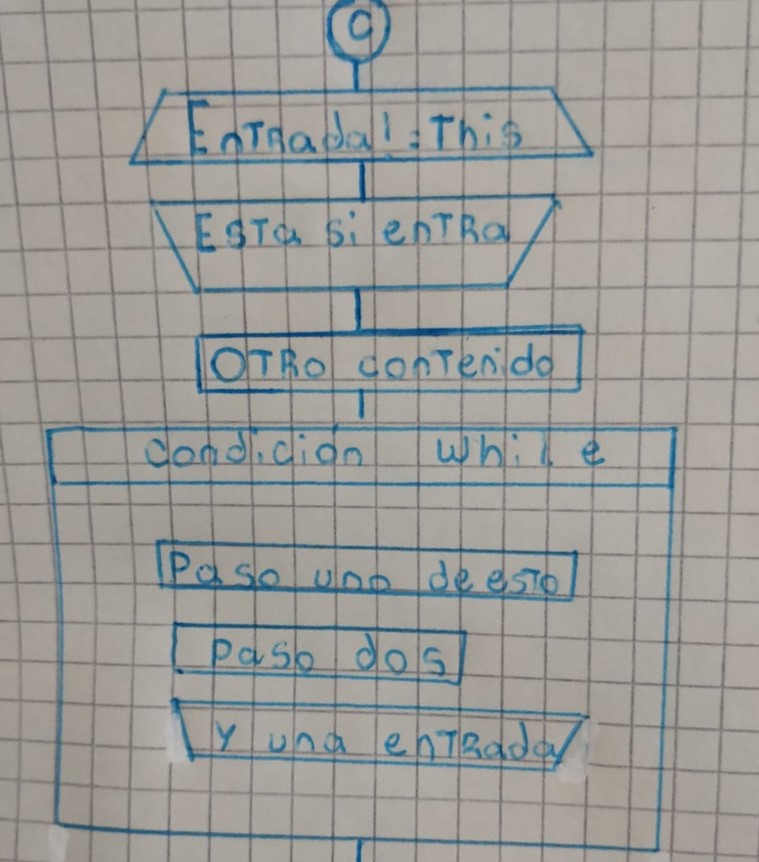 C
Entrada!=This
Esta si entra
OTRO contenido
condición while
Paso uno de esto
paso dos
y una entrada